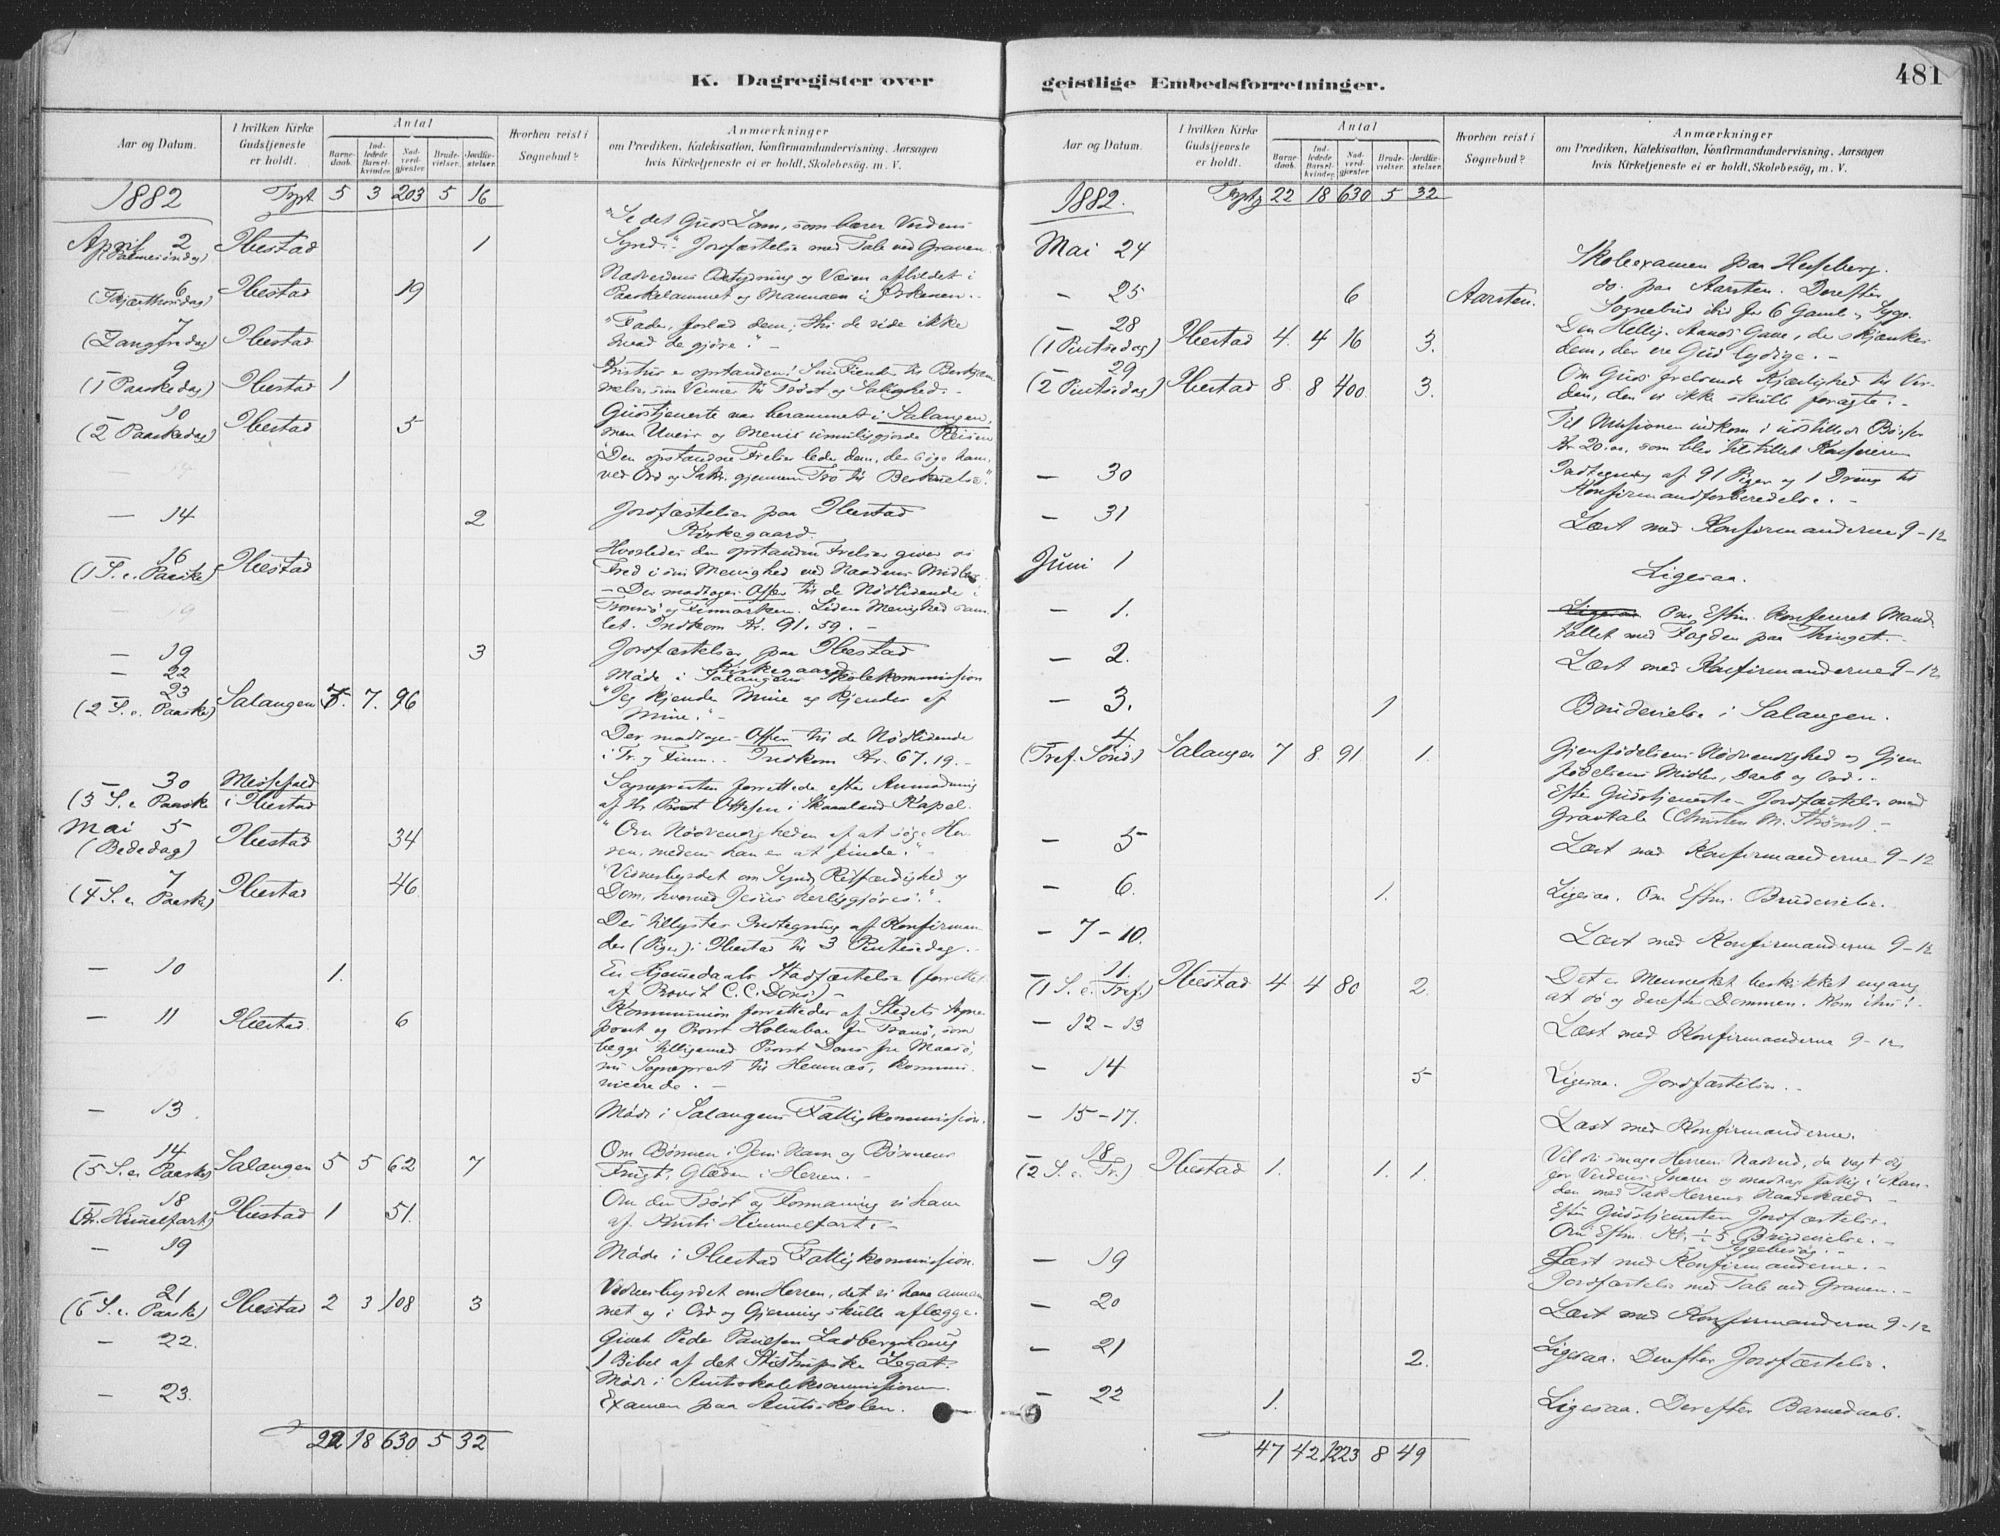 K. Dagregister over
Aar og Datum.
I hvilken Kirke Gudstjeneste er holdt.
Antal
Barnedaab.
Indledede Barselkvinder.
Nadverdgjester
Brudevielser.
Jordfæstelser.
Hvorhen reist i Sognebud?
Anmærkninger
om Prædiken, Katekisation, Konfirmandundervisning, Aarsagen
hvis Kirketjeneste ei er holdt, Skolebesøg, m. V.
1882 Trpt 5 3 203 5 16
April 2 (Palmesøndag) Ibestad 1
"Se det Guds Lam, som bærer Verdens
Synd." Jordfæstelse med Tale ved Graven.
6 (Skjærthorsdag) Ibestad 19
Nadverdens Betydning og Væsen afbildet i
Paaskelammet og Mannaen i Ørkenen.
7 (Langfredag) Ibestad
"Fader, forlad dem; thi de vide ikke
hvad de gjøre." –
9 (1 Paaskedag) Ibestad 1
Kristus er opstanden! Sine Fiender til
sine Venner til Trøst og Salighed. –
10 (2 Paaskedag) Ibestad 5
Gudstjeneste var berammet i Salangen,
men Uveir og umuliggjorde Reisen
"Den opstandne Frelser leder dem, der søge ham,
ved Ord og Sakr. gjennem Tro til
– 14 2
Jordfæstelser paa Ibestad
Kirkegaard.
– 16 (1 S. e. Paaske) Ibestad
Hvorledes den opstandne Frelser giver os
Fred i sin Menighed ved Naadens Midler
– Der modtoges Offer til de Nødlidende i
Tromsø og Finmarken. Liden Menighed sam-
let. Indkom Kr. 91.59. –
– 19 3
Jordfæstelser paa Ibestad
Kirkegaard
– 22
Møde i Salangens Skolekommission
– 23 (2 S. e. Paaske) Salangen 7. 7. 96
"Jeg kjender Mine og kjendes af
Mine." –
Der modtoges Offer til de Nødlidende
i Tr. og Finm. . Indkom Kr. 67.19. –
– 30 (3 S. e. Paaske Messefald i Ibestad
Sognepresten forrettede efter Anmodning
af Hr. Provst Ottesen i Skaanland Kapel.
Mai 5 (Bededag) Ibestad 34
"Om Nødvendigheden af at søge Her-
ren, medens han er at finde." –
– 7 (4 S. e. Paaske) Ibestad 46
"Vidnesbyrdet om Synd, Retfærdighed og
Dom, hvorved Jesus herliggjøres."
Der tillystes Indtegning af Konfirman-
der (Piger) i Ibestad til 3 Pintsedag. –
– 10 1.
En Hjemmedaabs Stadfæstelse (forrettet
af Provst C. C. Dons) –
– 11 Ibestad. 6
Kommunion forrettedes af Stedets Sogne-
prest og Provst Holmboe fra Tranø, som
begge tilligemed Provst Dons fra Maasø,
nu Sogneprest til Hemnæs, kommu-
nicerede. –
– 13.
Møde i Salangens Fattigkommission.
14 (5 S. e. Paaske) Salangen 5 5 62 7
Om Bønnen i Jesu Navn og Bønnens
Frugt, Glæden i Herren. –
– 18 (Kr. Himmelfart) Ibestad 1 51.
Om den Trøst og Formaning vi have
af Kristi Himmelfart. –
– 19
Møde i Ibestad Fattigkommission.
– 21 (6 S. e. Paaske) Ibestad 2 3 108 3
Vidnesbyrdet om Herren, det vi have annam-
met og i Ord og Gjerning skulle aflægge.
– 22.
Givet Peder Paulsen
1 Bibel af det Legat.
– 23.
Møde i Amtsskolekommissionen
Examen paa Amtsskolen.
22 18 630 5 32
geistlige Embedsforretninger. 481
Aar og Datum.
I hvilken Kirke Gudstjeneste er holdt.
Antal
Barnedaab.
Indledede Barselkvinder.
Nadverdgjester
Brudevielser.
Jordfæstelser.
Hvorhen reist i Sognebud?
Anmærkninger
om Prædiken, Katekisation, Konfirmandundervisning, Aarsagen
hvis Kirketjeneste ei er holdt, Skolebesøg, m. V.
1882. 22 18 630 5 32
Mai 24
Skoleexamen paa Hesseberg.
– 25 6 Aarsten.
do. paa Aarsten. Derefter
Sognebud for 6 Gamle og Syge.
– 28 (1 Pintsedag) Ibestad 4. 4 16 3.
Den Hellig Aands Gave, der skjænkes
dem, der ere Gud lydige. –
– 29 (2 Pintsedag) Ibestad 8. 8 400 3.
Om Guds frelsende Kjærlighed til Ver-
den, den vi ikke skulle foragte. –
Til Missionen indkom i udstillede Bøsser
Kr. 20.00, som blev tilstillet Kassereren
– 30
Indtegning af 91 Piger og 1 Dreng til
Konfirmandforberedelse. –
– 31
Læst med Konfirmanderne 9–12
Juni 1
Ligesaa.
– 1.
Om Eftm. Konfereret Mand-
tallet med Fogden paa Thinget. –
– 2.
Læst med Konfirmanderne 9–12
– 3. 1
Brudevielse i Salangen.
4 (Tref. Sønd.) Salangen 7 8. 91. 1.
Gjenfødelsens Nødvendighed og Gjen-
fødelsens Midler, Daab og Ord. –
Efter Gudstjeneste Jordfæstelse med
Gravtale (Christen M. Strømd. –
– 5
Læst med Konfirmanderne 9–12
– 6. 1.
Ligesaa. Om Eftm. Brudevielse.
– 7–10.
Læst med Konfirmanderne 9–12
– 11. (1 S. e. Tref.) Ibestad 4 4 80 2.
Det er Mennesket beskikket engang
at dø og derefter Dommen. Kom
– 12–13
Læst med Konfirmanderne 9–12
– 14 5
Ligesaa. Jordfæstelse. –
– 15–17.
Læst med Konfirmanderne.
18 (2 S. e. Tr.) Ibestad 1. 1. 1.
Vil du smage Herrens Nadverd, da vogt dig
for Verdens Snarer og modtag fattig i Aan-
den med Tak Herrens Naadekald. –
Efter Gudstjenesten Jordfæstelse.
Om Eftm. Kl. 5. Brudevielse. –
Sygebesøg. –
– 19
Læst med Konfirmanderne. –
Jordfæstelse med Tale ved Graven. –
– 20
Læst med Konfirmanderne 9–12
– 21 2.
Ligesaa. Derefter Jordfæstelse.
– 22 1.
Ligesaa. Derefter Barnedaab.
47 42 1223 8 49